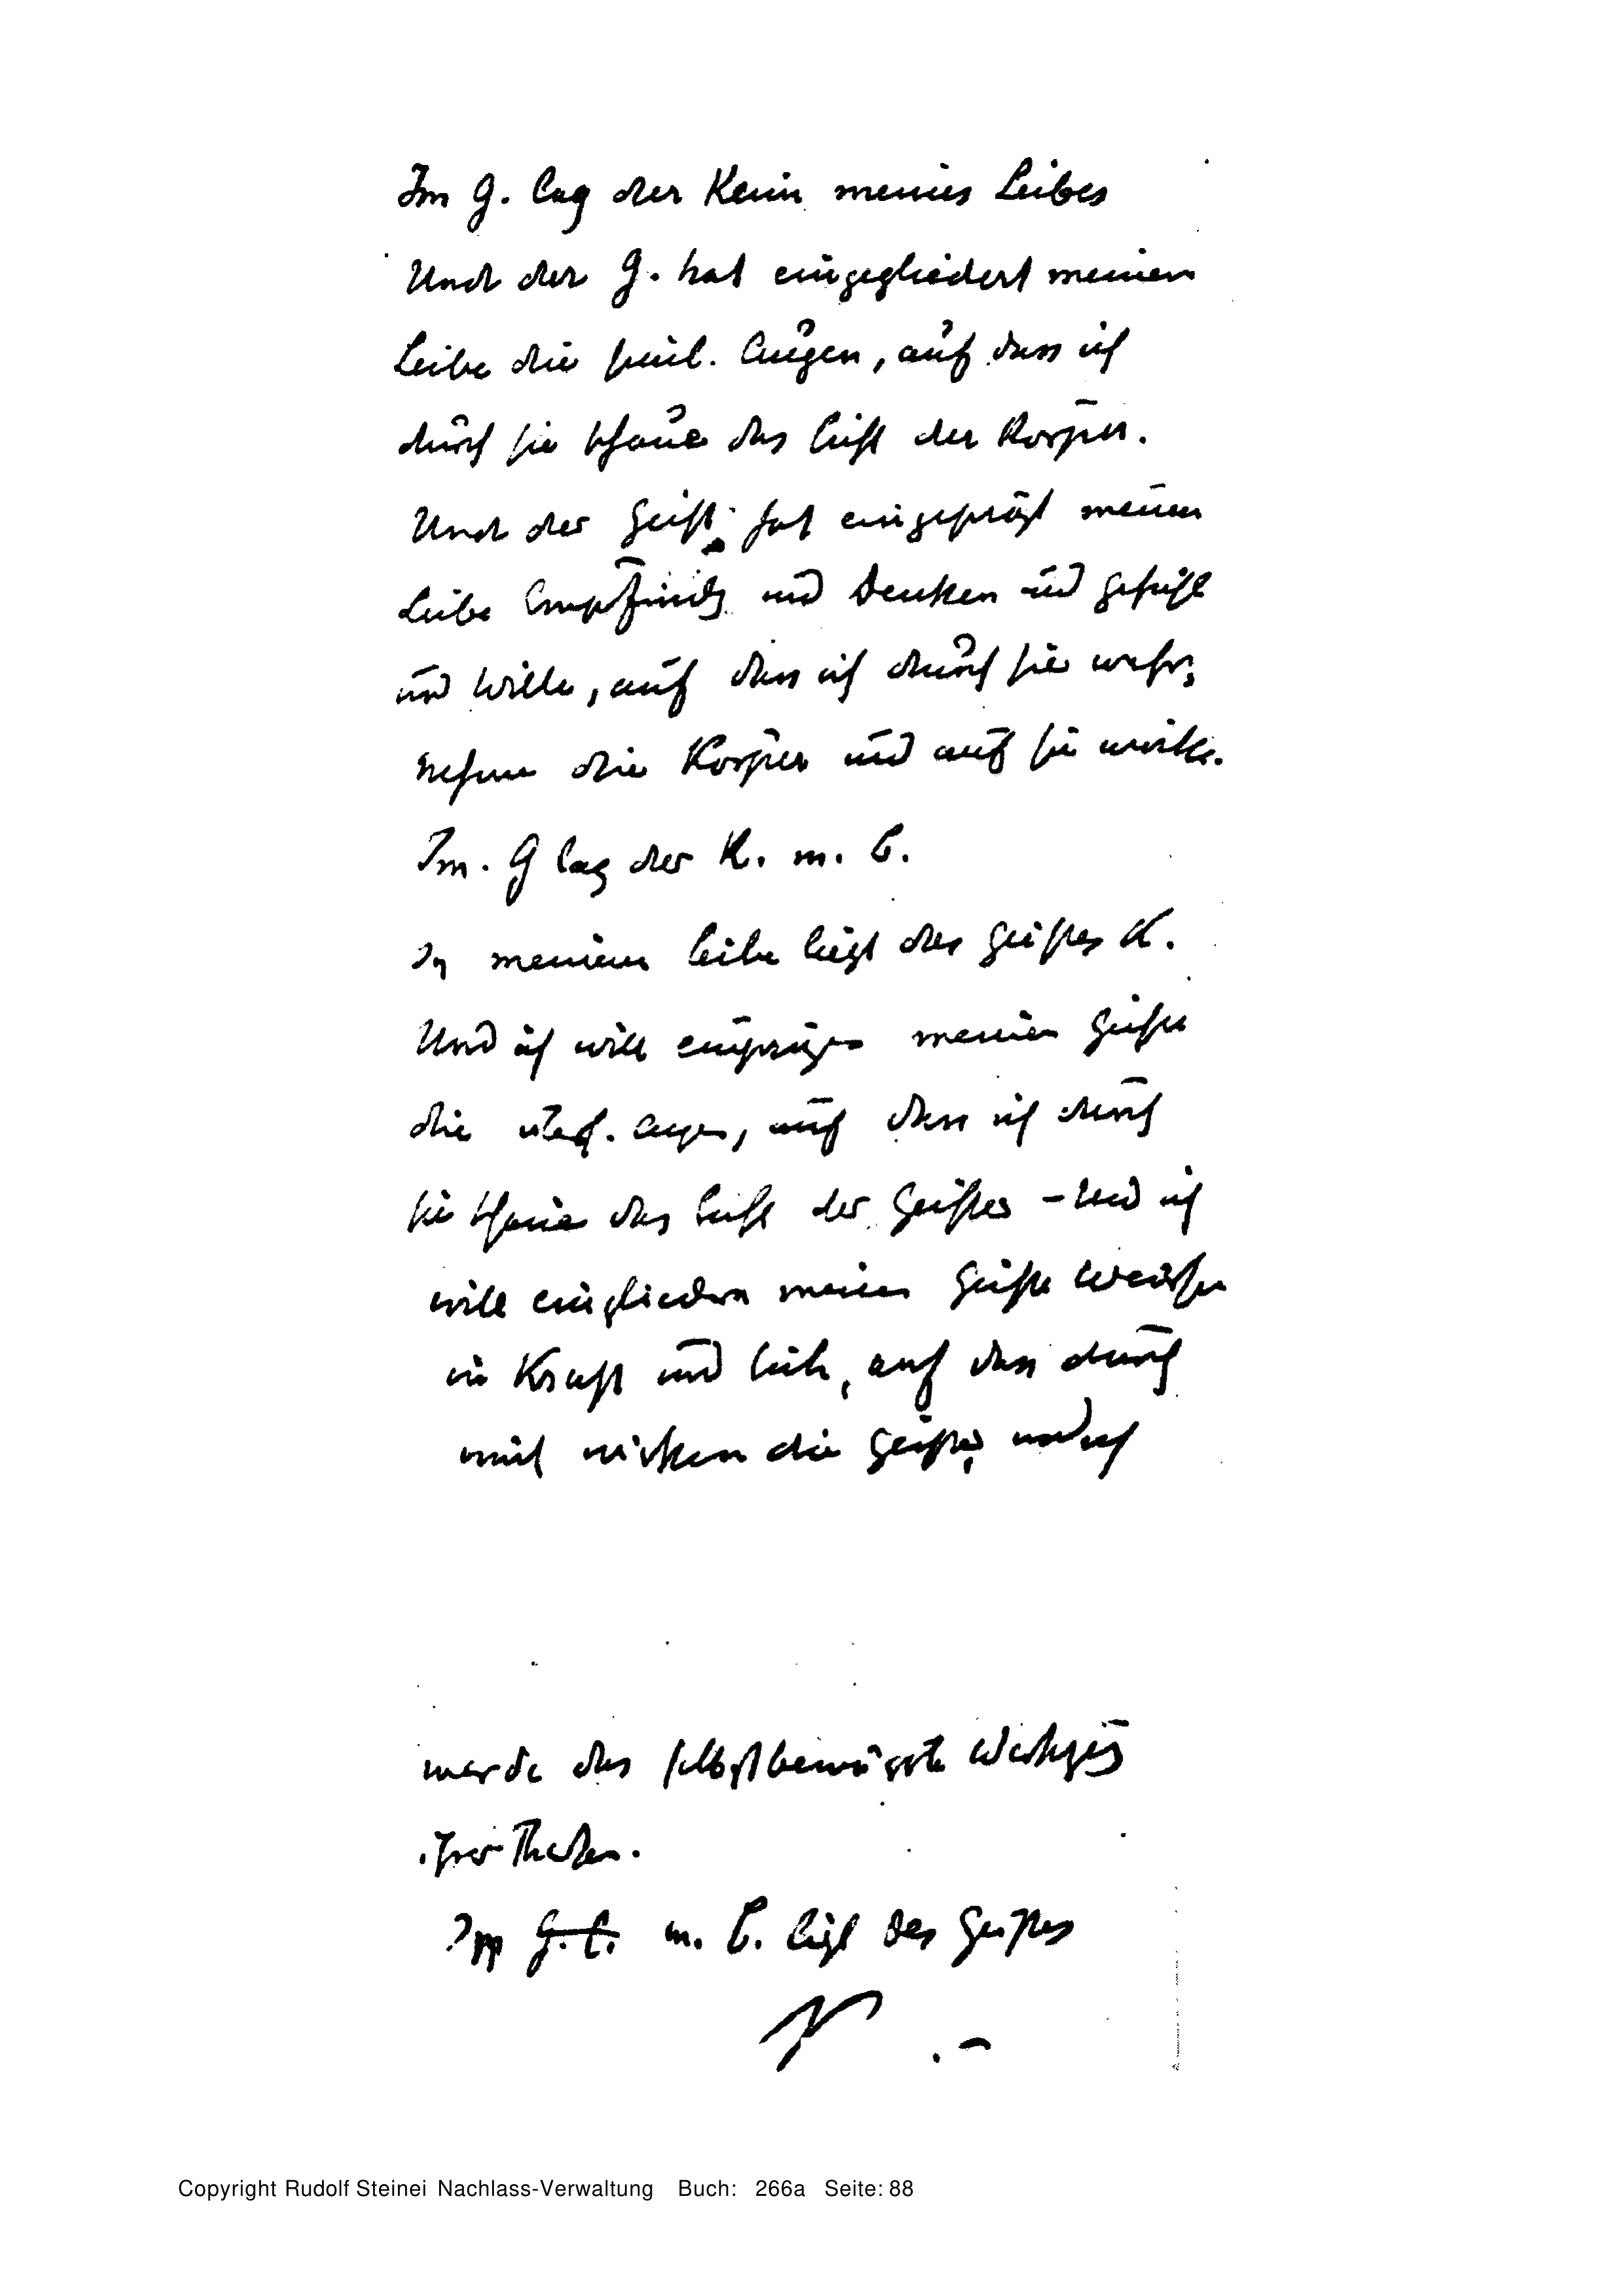 Im G. lag der Keim meines Leibes
Und der G. hat eingegliedert meinem
Leibe die sinnl. Augen, auf dass ich
durch sie schaue das Licht der Körper.
Und der Geist hat eingeprägt meinem
Leibe Empfindg und Denken und Gefühl
und Wille, auf dass ich durch sie wahr-
nehme die Körper und auf sie wirke.
Im. G lag der K. m. L.
In meinem Leibe liegt des Geistes K.
Und ich will einprägen meinem Geiste
die Augen, auf dass ich durch
sie schaue das Licht der Geister – Und ich
will eingliedern meinem Geiste Weisheit
Kraft und Liebe, auf dass durch
mich wirken die Geister und ich
werde das selbstbewusste Werkzeug
ihrer Thaten.
In G. L. m. L. liegt des Geistes
K
Copyright Rudolf Steinei Nachlass-Verwaltung Buch: 266a Seite: 88